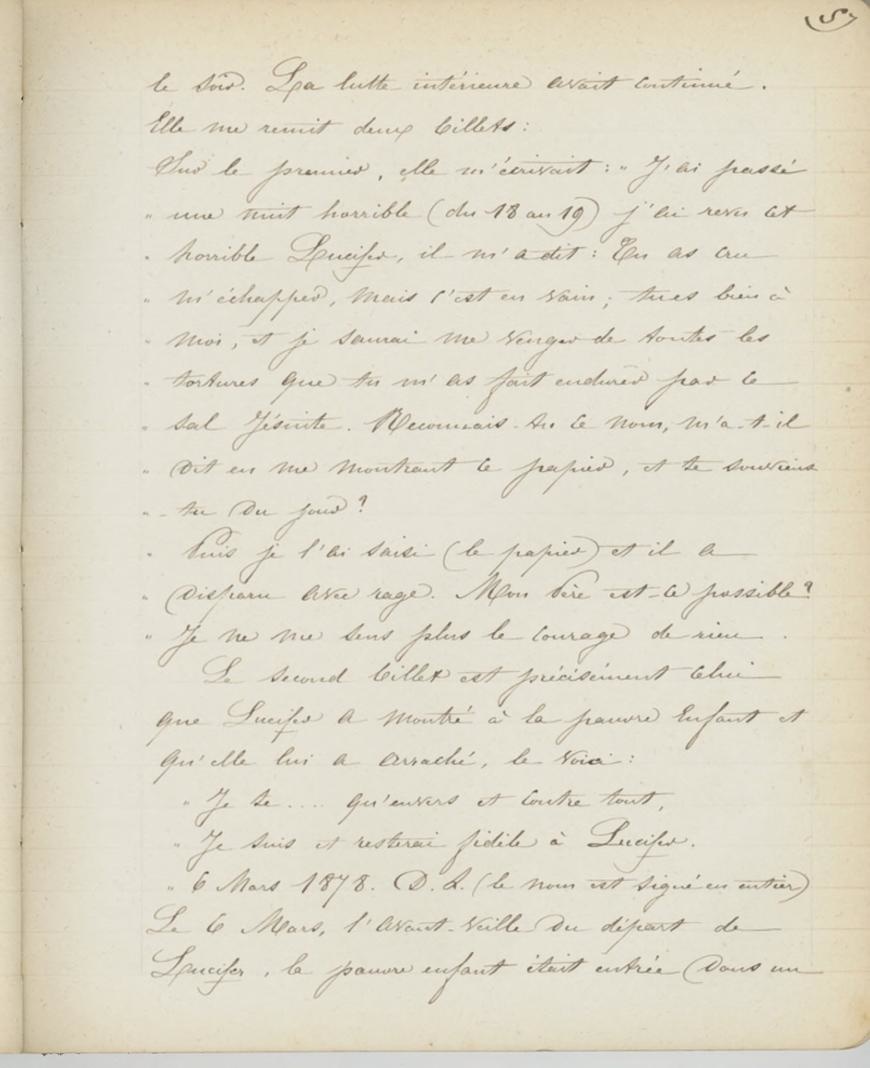 5
le soir. La lutte intérieure avait continué.
Elle me remit deux billets :
Sur le premier, elle m'écrivait : " J'ai passé
" une nuit horrible (du 18 au 19) j'ai revu cet
" horrible Lucifer, il m'a dit : Tu as cru
" m'échapper, mais c'est en vain ; tu es bien à
" moi, et je saurai me venger de toutes les
" tortures que tu m'as fait endurer par ce
" sal Jésuite. Reconnais-tu ce nom, m'a-t-il
" dit en me montrant ce papier, et te souviens
" -tu du jour ?
" Puis je l'ai saisi (le papier) et il a
" disparu avec rage. Mon Père est-ce possible ?
" Je ne me sens plus le courage de rien.
Le second billet est précisément celui
que Lucifer a montré à la pauvre enfant et
qu'elle lui a arraché, le voici :
" Je te .... qu'envers et contre tout,
" Je suis et resterai fidèle à Lucifer.
" 6 Mars 1878. D. L. (le nom est signé en entier)
Le 6 Mars, l'avant-veille du départ de
Lucifer, la pauvre enfant était entrée dans un